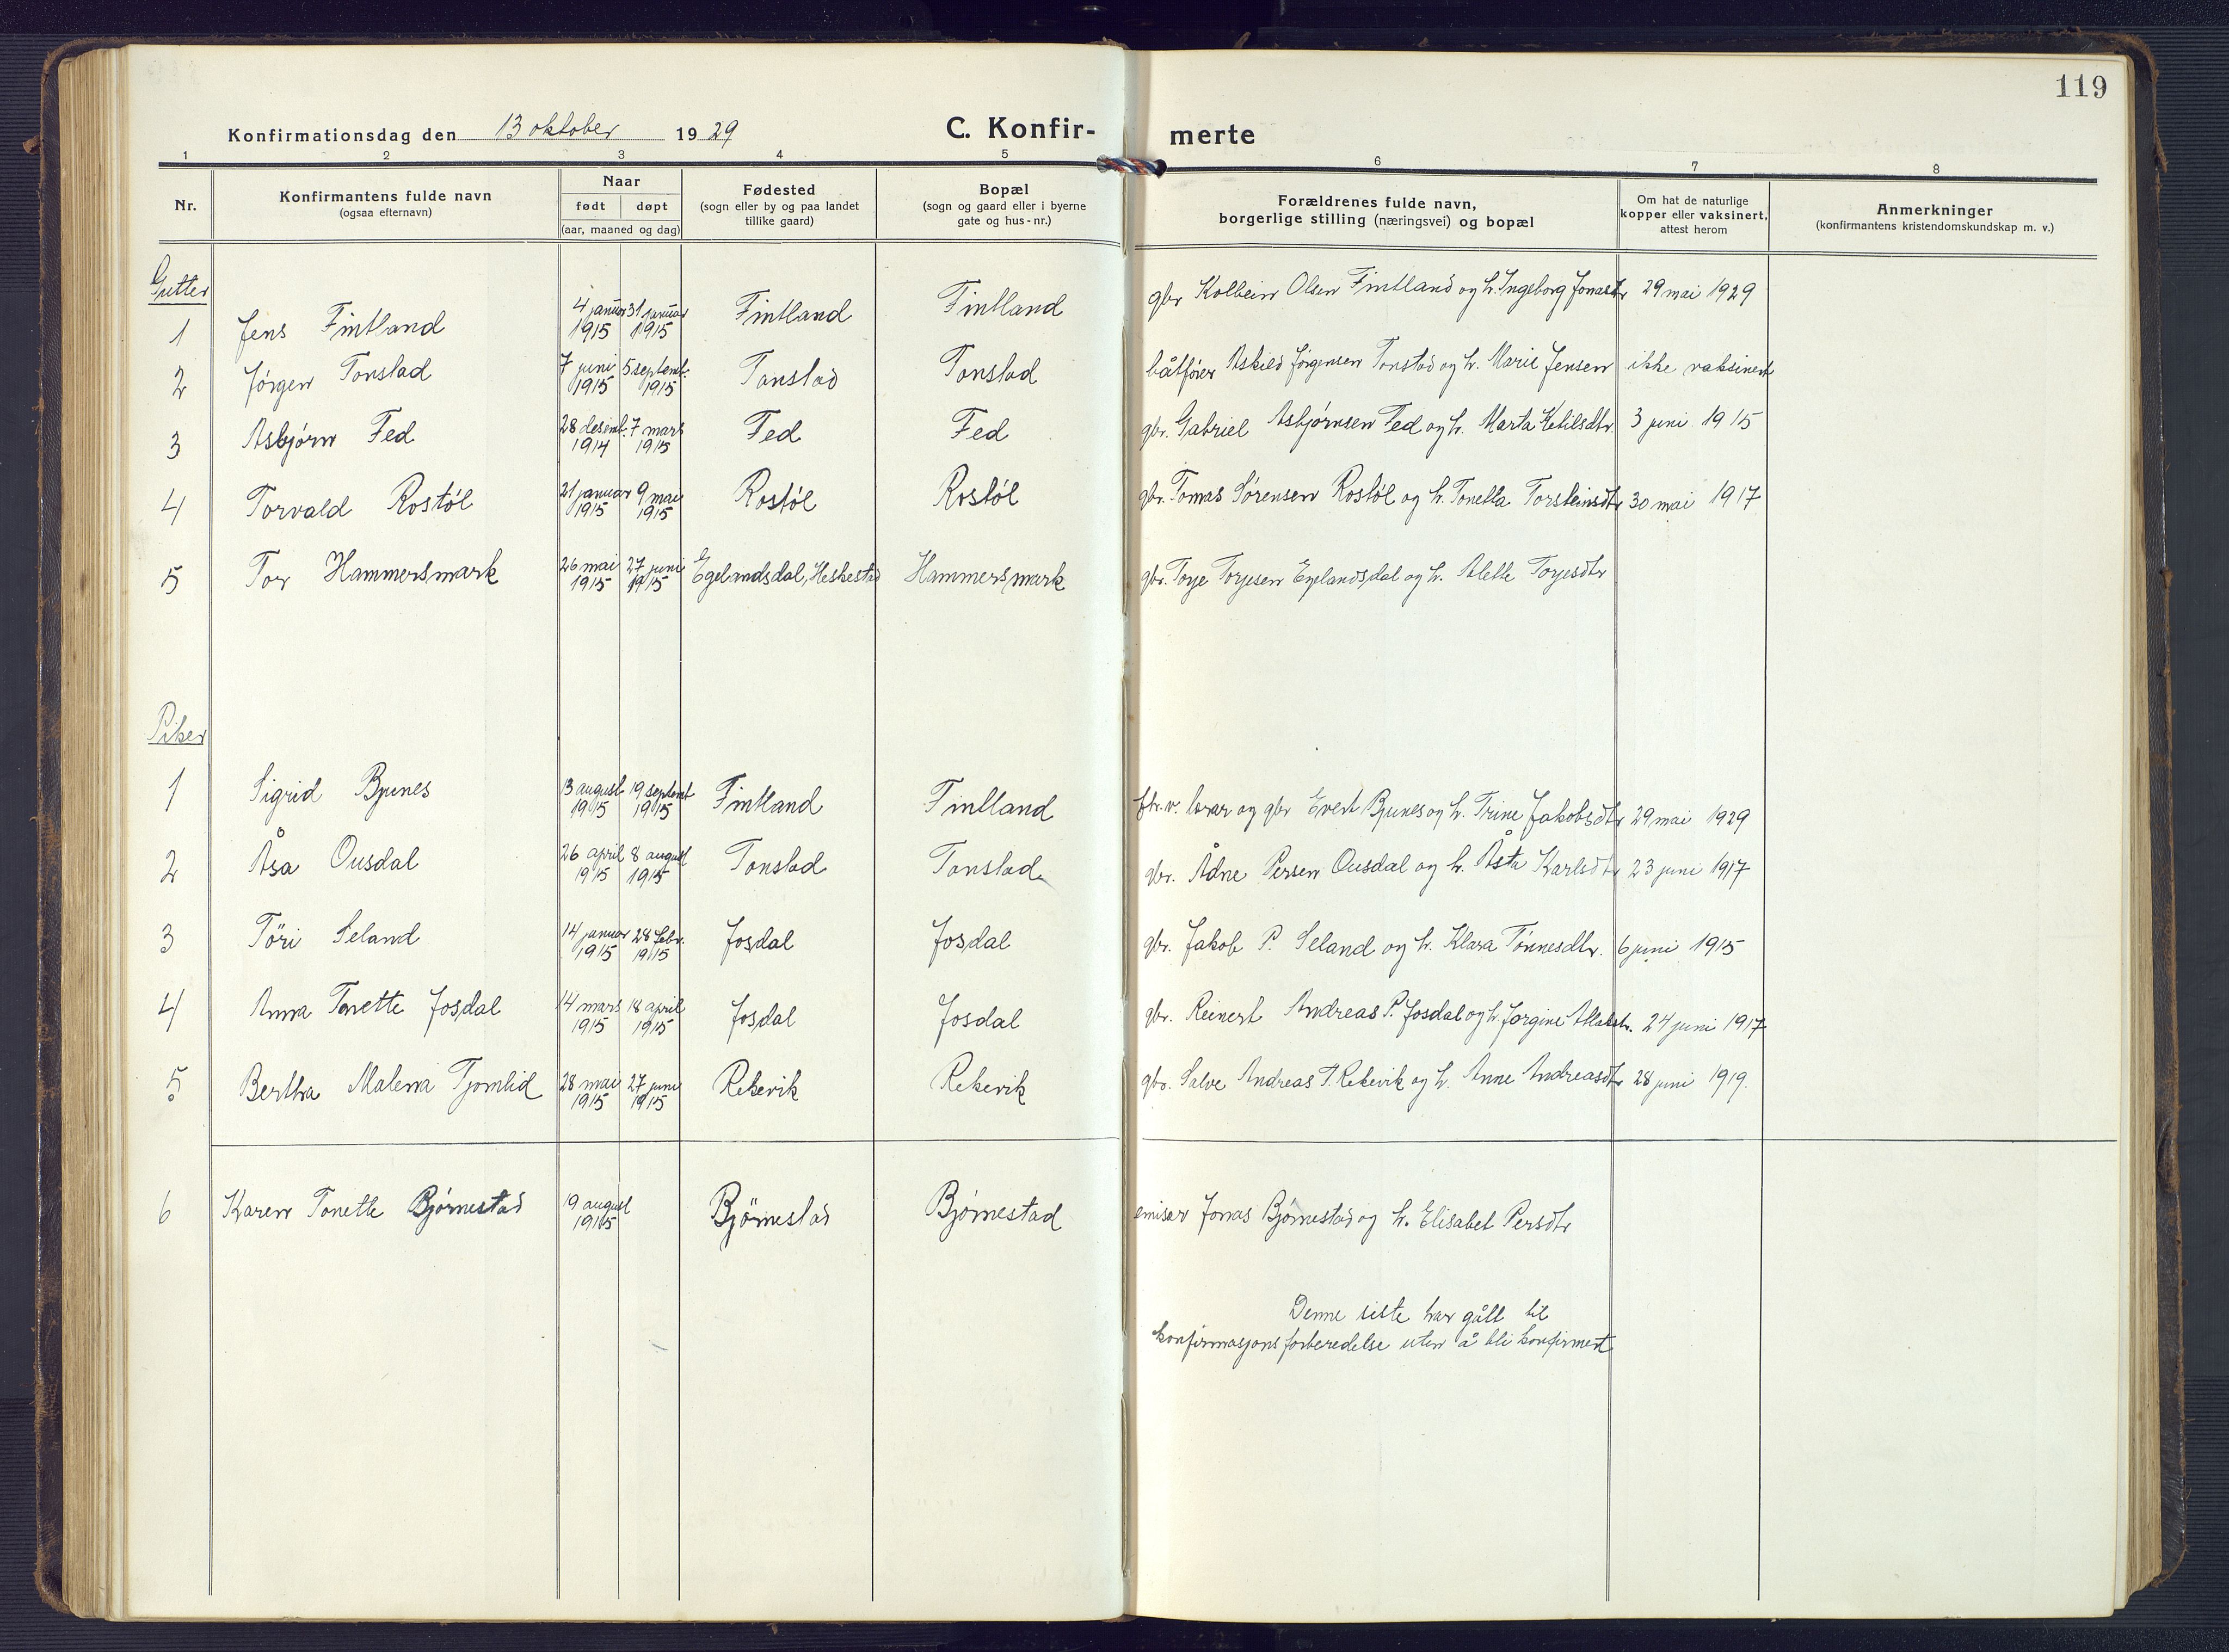 119
Konfirmationsdag den 13 oktober 1929 C. Konfir- merte
1 2 3 4 5 6 7 8
Nr.
Konfirmantens fulde navn
(ogsaa efternavn)
Naar
født døpt
(aar, maaned og dag)
Fødested
(sogn eller by og paa landet
tillike gaard)
Bopæl
(sogn og gaard eller i byerne
gate og hus-nr.)
Forældrenes fulde navn,
borgerlige stilling (næringsvei) og bopæl
Om hat de naturlige
kopper eller vaksinert,
attest herom
Anmerkninger
(konfirmantens kristendomskundskap m. v.)
Gutter
1 Jens Fintland 4 januar 1915 31 januar 1915 Fintland Fintland gbr Kolbein Olsen Fintland og h. Ingeborg Jonasdtr 29 mai 1929
2 Jørgen Tonstad 7 juni 1915 5 septemb. 1915 Tonstad Tonstad båtfører Askild Jørgensen Tonstad og h. Marie Jensen ikke vaksinert
3 Asbjørn Fed 28 desemb. 1914 7 mars 1915 Fed Fed gbr. Gabriel Asbjørnsen Fed og h. Marta Ketilsdtr. 3 juni 1915
4 Torvald Rostøl 21 januar 1915 9 mai 1915 Rostøl Rostøl gbr. Tomas Sørensen Rostøl og h. Tonetta Torsteinsdtr 30 mai 1917
5 Tor Hammersmark 26 mai 1915 27 juni 1915 Egelandsdal, Heskestad Hammersmark gbr. Torje Torjesen Egelandsdal og h. Alette Torjesdtr
Piker
1 Sigrid Bjunes 13 august 1915 19 septemb 1915 Fintland Fintland lærar og gbr Evert Bjunes og h. Trine Jakobsdtr 29 mai 1929
2 Åsa Ousdal 26 april 1915 8 august 1915 Tonstad Tonstad gbr. Ådne Persen Ousdal og h. Åsta Karlsdtr 23 juni 1917
3 Töri Seland 14 januar 1915 28 febr. 1915 Josdal Josdal gbr. Jakob P. Seland og h. Klara Tönnesdtr. 6 juni 1915
4 Anna Tonette Josdal 14 mars 1915 18 april 1915 Josdal Josdal gbr. Reinert Andreas P. Josdal og h. Jorgine 24 juni 1917
5 Bertha Malena Tjomlid 28 mai 1915 27 juni 1915 Rekevik Rekevik gbr. Salve Andreas T. Rekevik og h. Anne Andreasdtr 28 juni 1919.
6 Karen Tonette Bjørnestad 19 august 1915 Bjørnestad Bjørnestad emisær Jonas Bjørnestad og h. Elisabet Persdtr
Denne siste har gått til
konfirmasjonsforberedelse uten å bli konfirmert